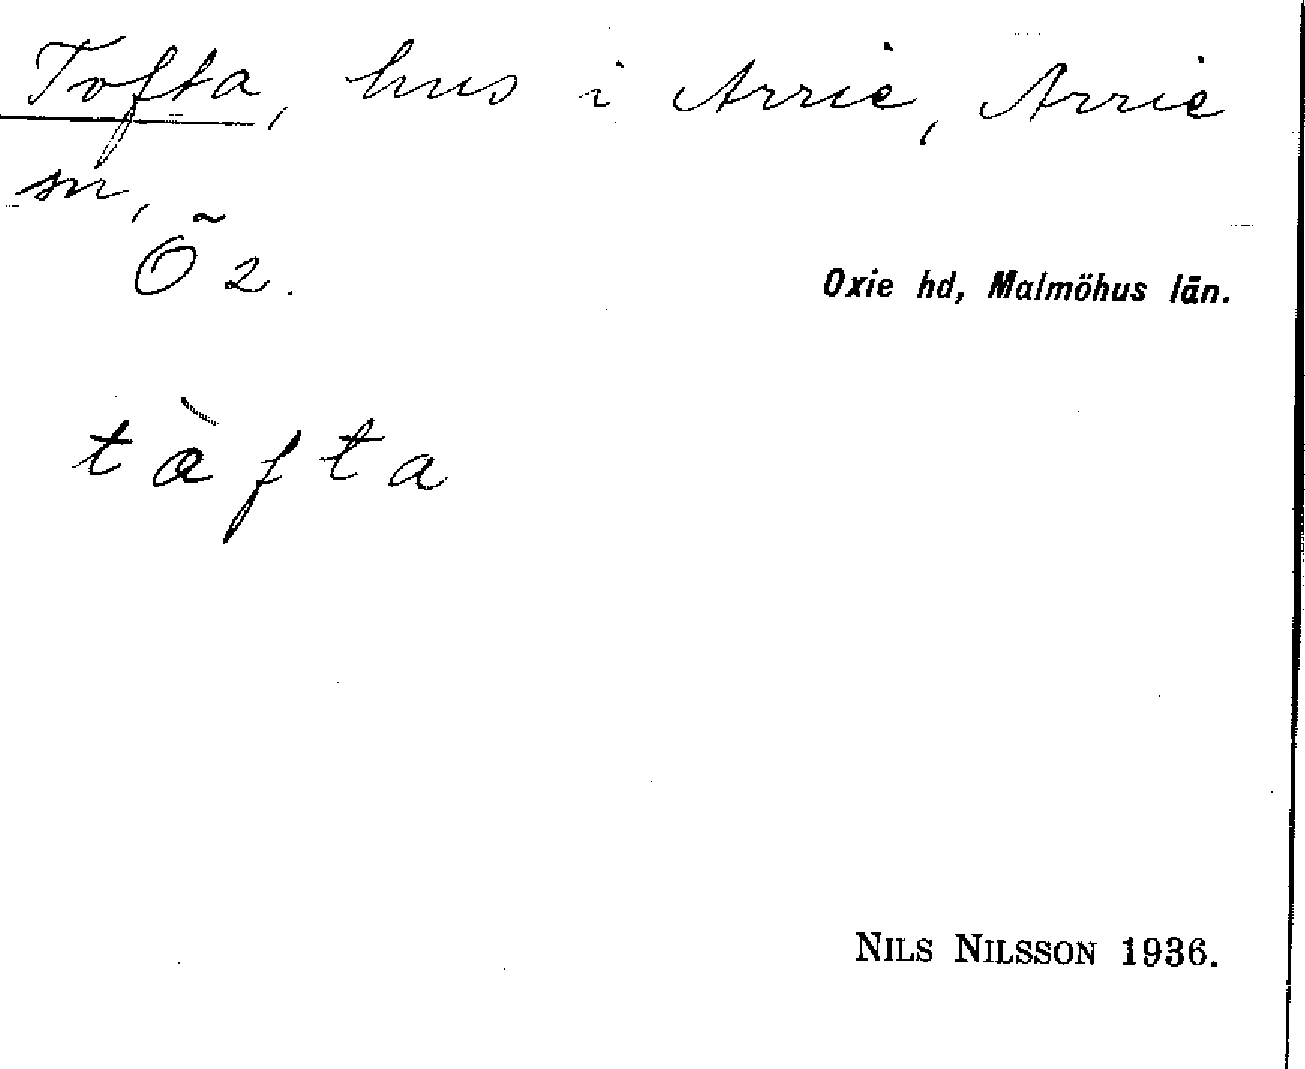 Tofta, hus i Arrie, Arrie
sn,
Õ 2.
Oxie hd, Malmöhus län.
tàfta
NILS NILSSON 1936.